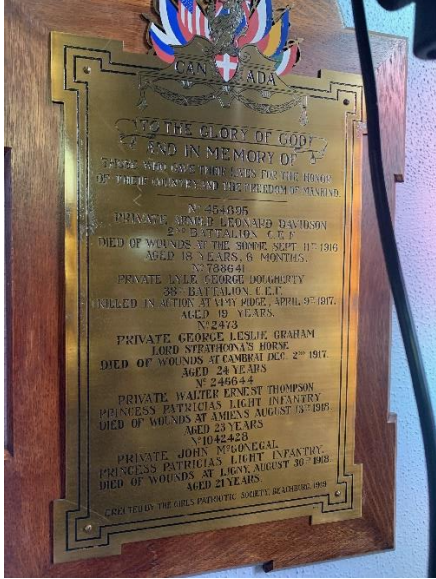 CANADA
TO THE GLORY OF GOD
AND IN MEMORY OF
THOSE WHO GAVE THEIR LIVES FOR THE HONOR
OF THEIR COUNTRY AND THE FREEDOM OF MANKIND.
No 454895
PRIVATE LEONARD DAVIDSON
2ND BATTALION. C.E.F.
DIED OF WOUNDS AT THE SOMME SEPT. 11TH 1916
AGED 18 YEARS, 6 MONTHS.
No 788641
PRIVATE LYLE GEORGE DOUGHERTY
38TH BATTALION. C.E.F.
KILLED IN ACTION AT VIMY RIDGE, APRIL 9TH 1917.
AGED 19 YEARS.
No 2473
PRIVATE GEORGE LESLIE GRAHAM
LORD STRATHCONA'S HORSE
DIED OF WOUNDS AT CAMBRAI DEC. 2ND 1917.
AGED 24 YEARS
No 246644
PRIVATE WALTER ERNEST THOMPSON
PRINCESS PATRICIAS LIGHT INFANTRY
DIED OF WOUNDS AT AMIENS AUGUST 13TH 1918
AGED 23 YEARS
No 1042428
PRIVATE JOHN McGONEGAL
PRINCESS PATRICIAS LIGHT INFANTRY.
DIED OF WOUNDS AT LIGNY, AUGUST 30TH 1918.
AGED 21 YEARS.
ERECTED BY THE GIRLS PATRIOTIC SOCIETY, BEACHBURG, 1919